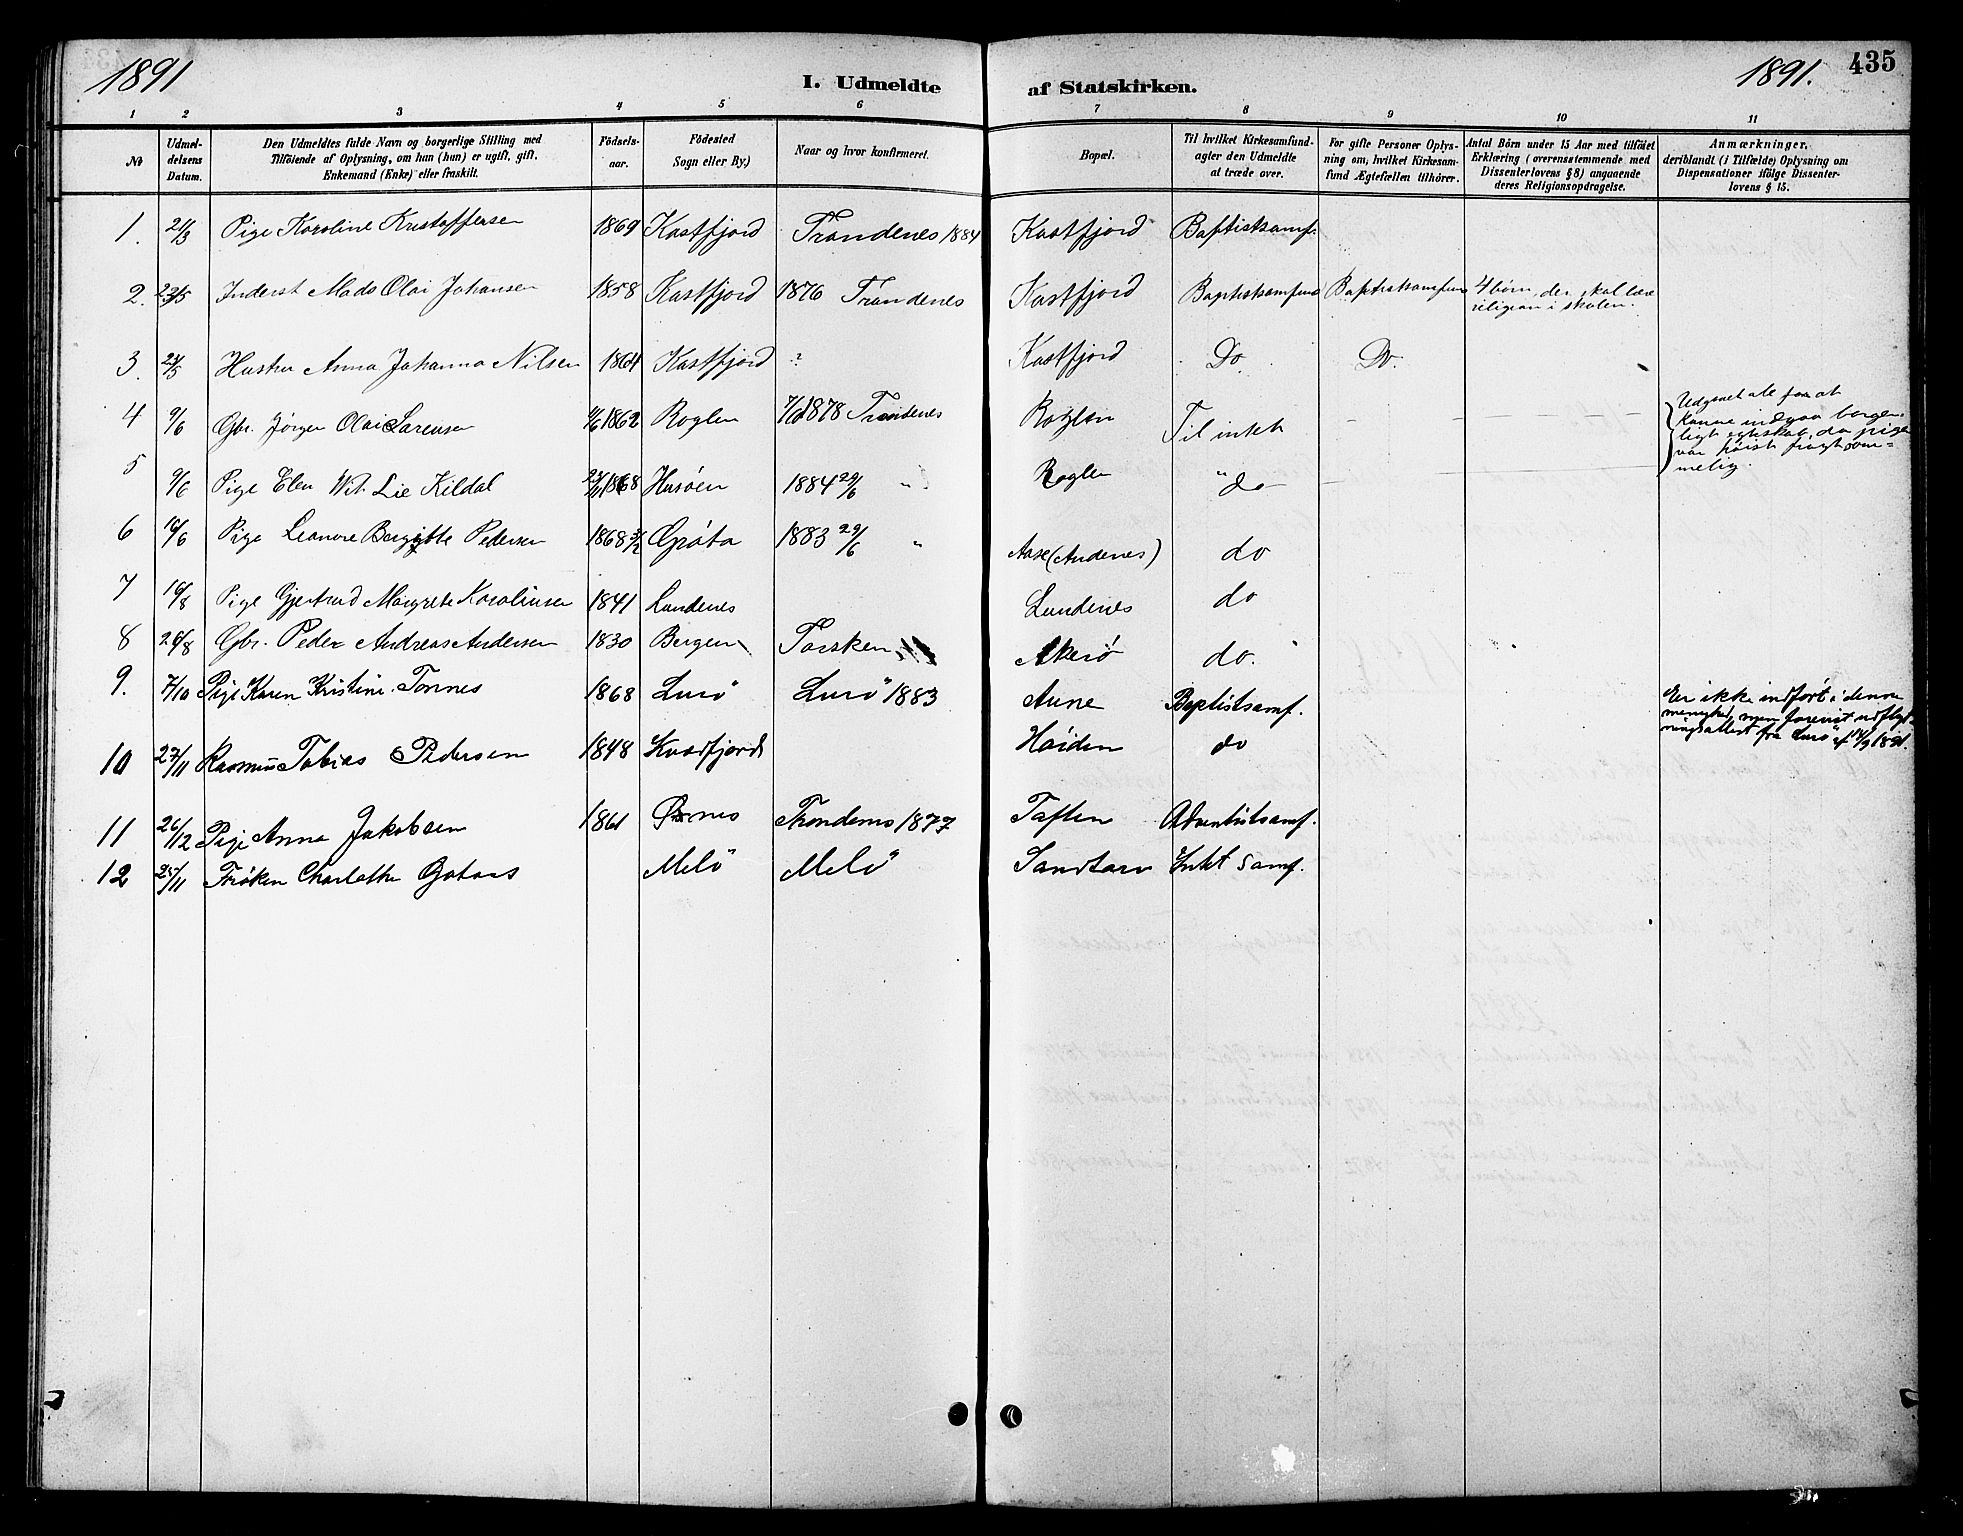 1891
I. Udmeldte af Statskirken.
1891.
435
1 2 3 4 5 6 7 8 9 10 11
No
Udmeldelsens Datum.
Den Udmeldtes fulde Navn og borgerlige Stilling med
Tilføiende af Oplysning, om han (hun) er ugift, gift,
Enkemand (Enke) eller fraskilt.
Födselsaar.
Födested
Sogn eller By.)
Naar og hvor konfirmeret.
Bopæl.
Til hvilket Kirkesamfund-
agter den Udmeldte
at træde over.
For gifte Personer Oplys-
ning om, hvilket Kirkesam-
fund Ægtefællen tilhörer.
Antal Börn under 15 Aar med tilföiet
Erklæring (overensstemmende med
Dissenterlovens § 8) angaaende
deres Religionsopdragelse.
Anmærkninger,
deriblandt (i Tilfælde) Oplysning om
Dispensationer ifölge Dissenter-
lovens § 15.
1. 21/3 Pige Karoline Kristoffersen 1869 Kastfjord Trondenes 1884 Kastfjord Baptistsamf.
2. 23/5 Inderst Mads Olai Johansen 1858 Kastfjord 1876 Trondenes Kastfjord Baptistsamfund Baptistsamfund 4 børn, der skal lære
religion i skolen.
3. 23/5 Hustru Anna Johanna Nilsen 1864 Kastfjord ? Kastfjord Do. Do.
4 9/6 Gbr. Jørgen Olai Sørensen 1862 Roglen 1878 Trondenes Roglen Til intet
Udmeldt alle for at
kunne indgaa borger-
ligt egteskab, da pigen
var høist frugtsom-
melig.
5 9/6 Pige Elen Wit. Lie Kildal 1868 Husøen 1884 29/6 " Roglen " do
6 10/6 Pige Leonore Bergitte Pedersen 1868 Grøta 1883 29/6 " Aase (Andenes) do
7 10/8 Pige Gjertrud Margrete Karolinsen 1841 Lundenes Lundenes do
8 26/8 Gbr. Peder Andreas Andersen 1830 Bergen Torsken Akerø do.
9. 7/10 Pige Karen Kristine Tonnes 1868 Lurø Lurø 1883 Aune Baptistsamf.
Er ikke indført i denne
menighed, men forevist udflyt-
ningsattest fra Lurø af 14/9 1891.
10 27/11 Rasmus Tobias Pedersen 1848 Kvædfjord Høiden do
11 26/12 Pige Anna Jakobsen 1861 Ørnes Trondenes 1877 Taften Adventistsamf.
12 25/11 Frøken Charlotte Gotaas Melø Melø Sandtorv Intet Samf.